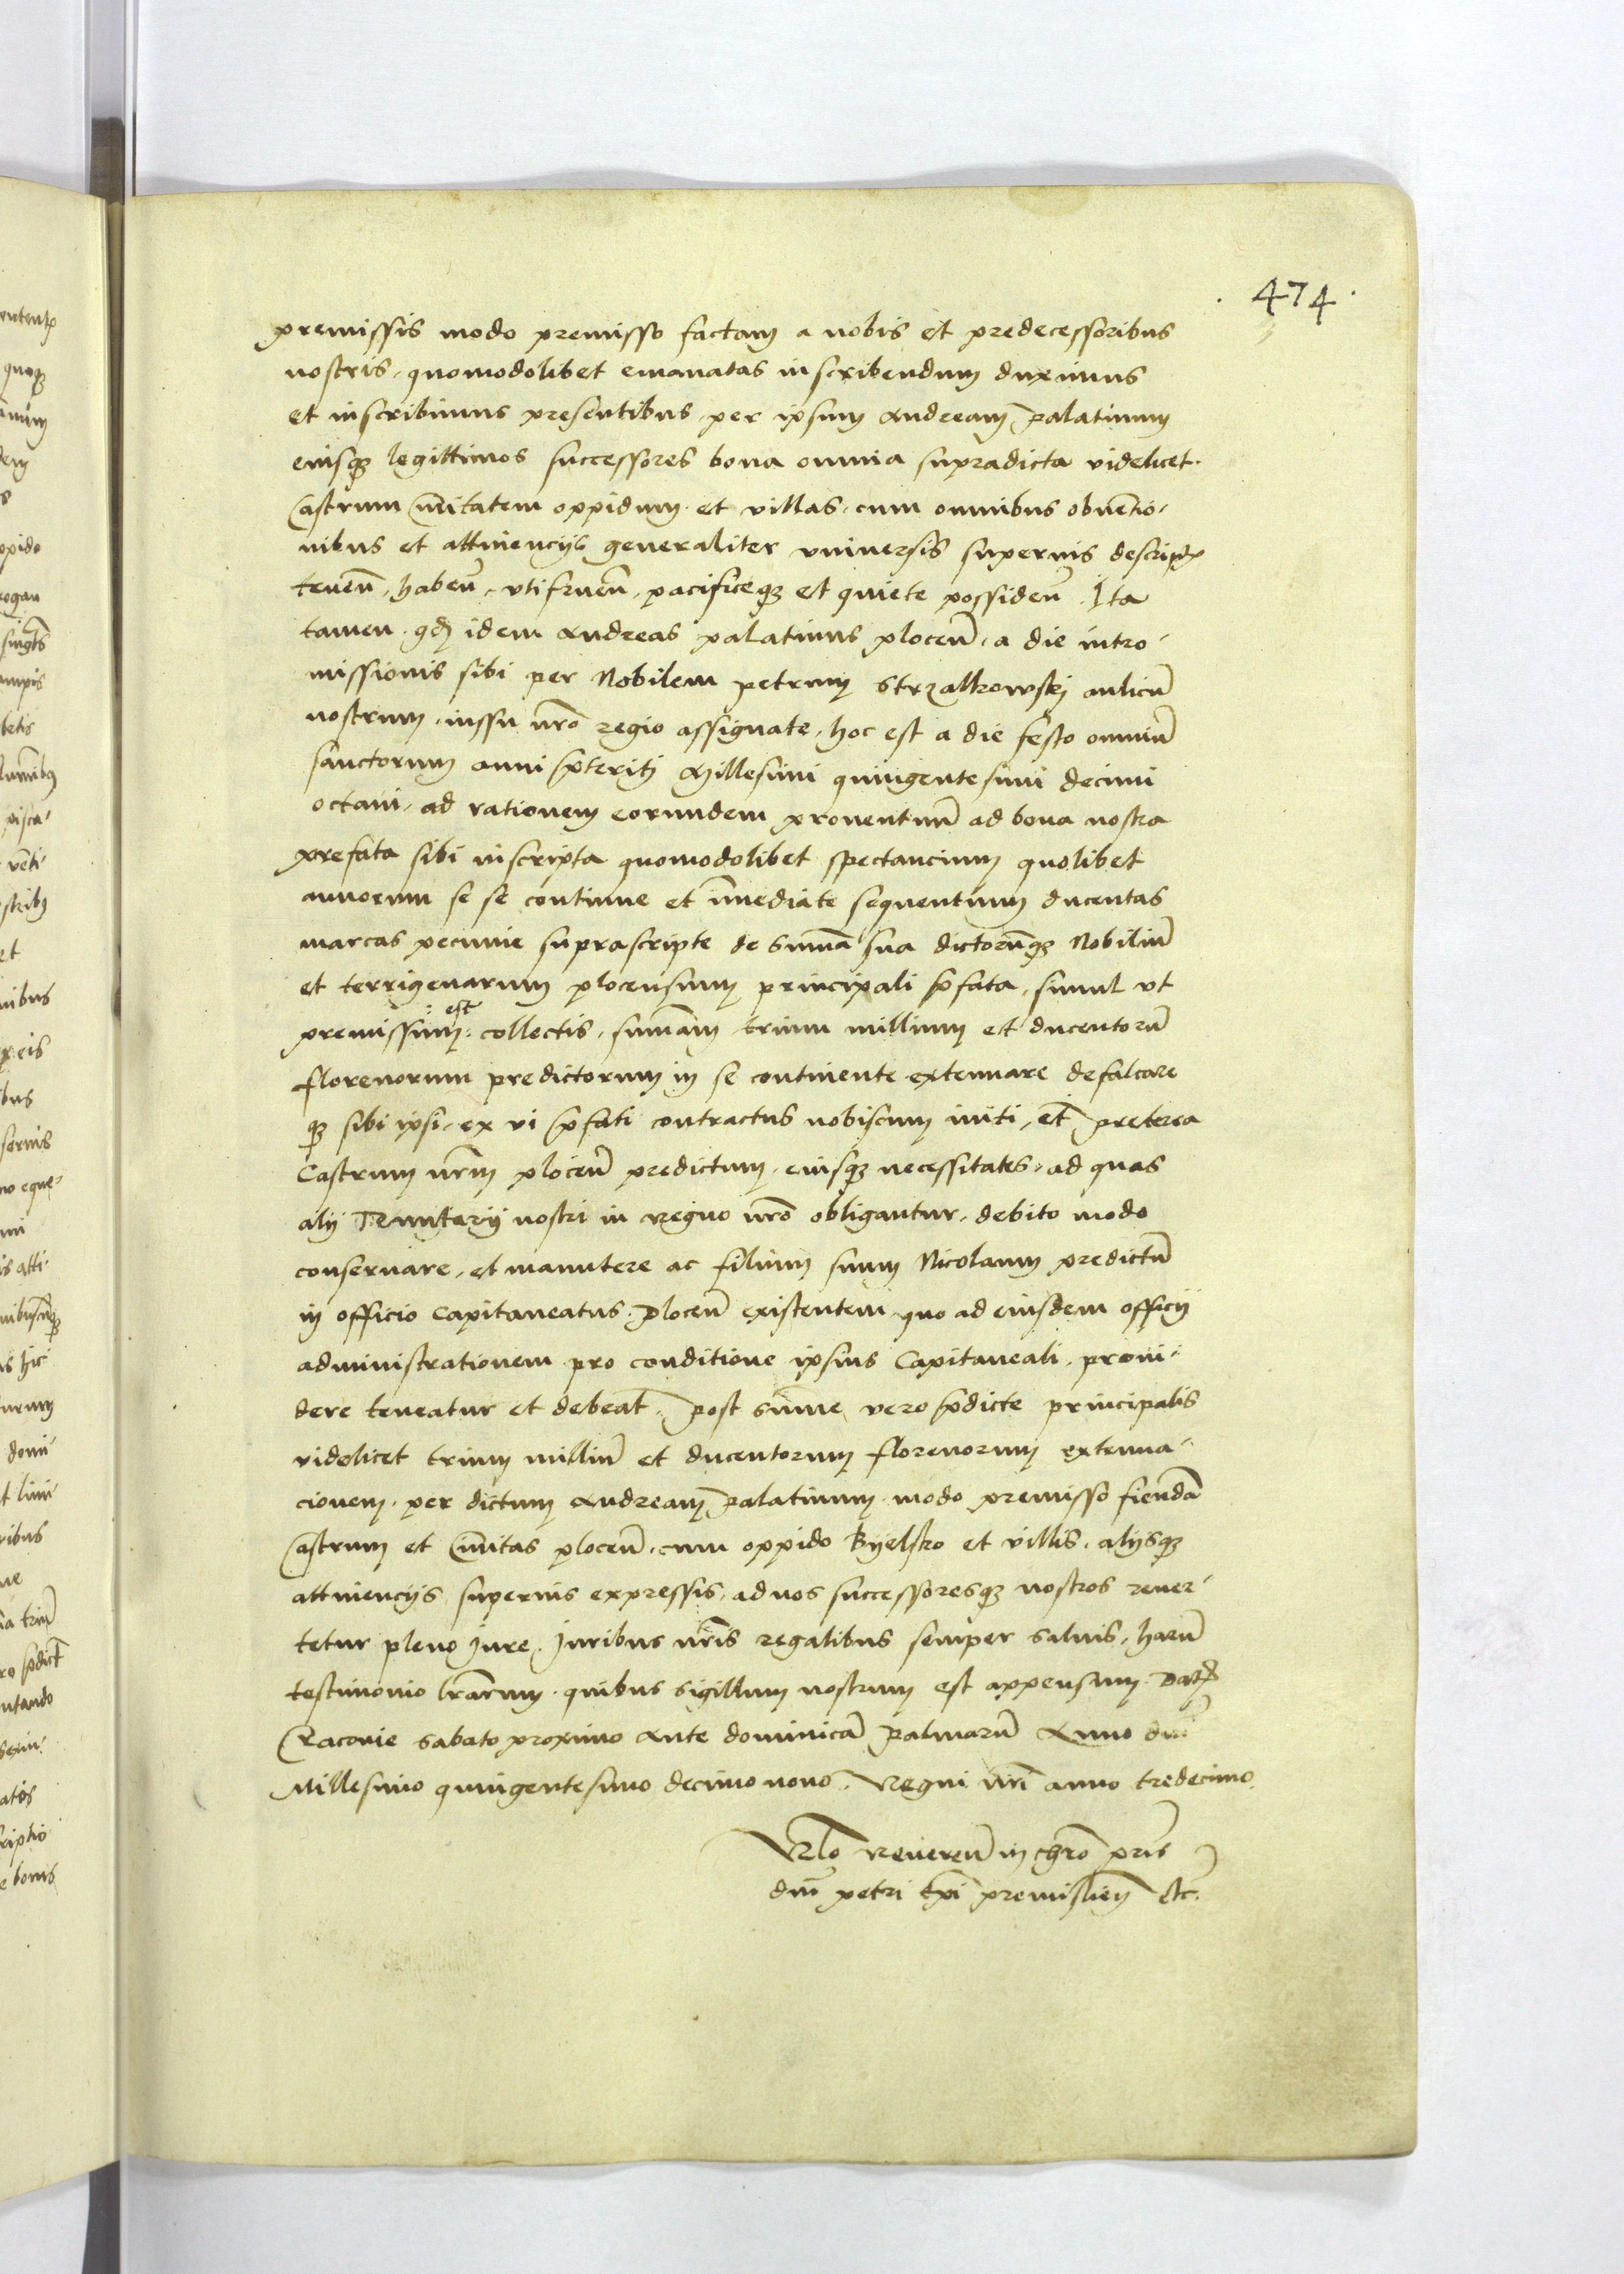 474
premissis modo premisso factam a nobis et predecessoribus
nostris, quomodolibet emanatas inscribendum duximus
et inscribimus presentibus, per ipsum Andream palatinum
eiusqȝ legittimos successores bona omnia supradicta videlicet.
Castrum Ciuitatem oppidum et villas, cum omnibus obuētio-
nibus et attinencijs generaliter vniuersis superius descriptꝭ
tenen̄, haben̄, vtifruen̄, pacificeqȝ et quiete possiden̄. Ita
tamen qđ idem Andreas palatinus plocen̄, a die intro-
missionis sibi per Nobilem petrum Strzalkowskj aulicū
nostrum, iussu nr̄o regio assignate, hoc est a die festo omniū
sanctorum anni p̄teritj Millesimi quingentesimi decimi
octaui, ad rationem eorundem prouentuū ad bona nostra
prefata sibi inscripta quomodolibet spectancium quolibet
annorum se se continue et īmediate sequentium ducentas
marcas pecunie suprascripte de sum̄a sua dictorūqȝ Nobiliū
et terrigenarum plocensium principali p̄fata, simul vt
premissum : est collectis, sum̄am trium millium et ducentorū
florenorum predictorum in se continente extenuare defalcare
qȝ sibi ipsi, ex vi p̄fati contractus nobiscum initi, et preterea
Castrum nr̄m plocen̄ predictum, eiusqȝ necessitates, ad quas
alij Tenutarij nostri in Regno nr̄o obligantur, debito modo
conseruare, et manutere ac filium suum Nicolaum predictū
in officio Capitaneatus Plocen̄ existentem quo ad eiusdem officij
administrationem pro conditione ipsius Capitaneali, proui-
dere teneatur et debeat. Post sum̄e vero p̄dicte principalis
videlicet trium milliū et ducentorum florenorum extenua-
cionem, per dictum Andream palatinum modo premisso fiendā
Castrum et Ciuitas plocen̄, cum oppido Byelsko et villis, alijsqȝ
attinencijs superius expressis, ad nos successoresqȝ nostros reuer-
tetur pleno Jure. Juribus nr̄is regalibus semper saluis, harū
testimonio lr̄arum quibus sigillum nostrum est appensum. Datꝭ
Cracouie sabato proximo ante dominicā Palmarū Anno dnī
Millesimo quingentesimo decimo nono. Regni nr̄i anno tredecimo.
Rlo Reueren̄ in chr̄o pr̄is
dnī petri Epī premislien̄ etc.